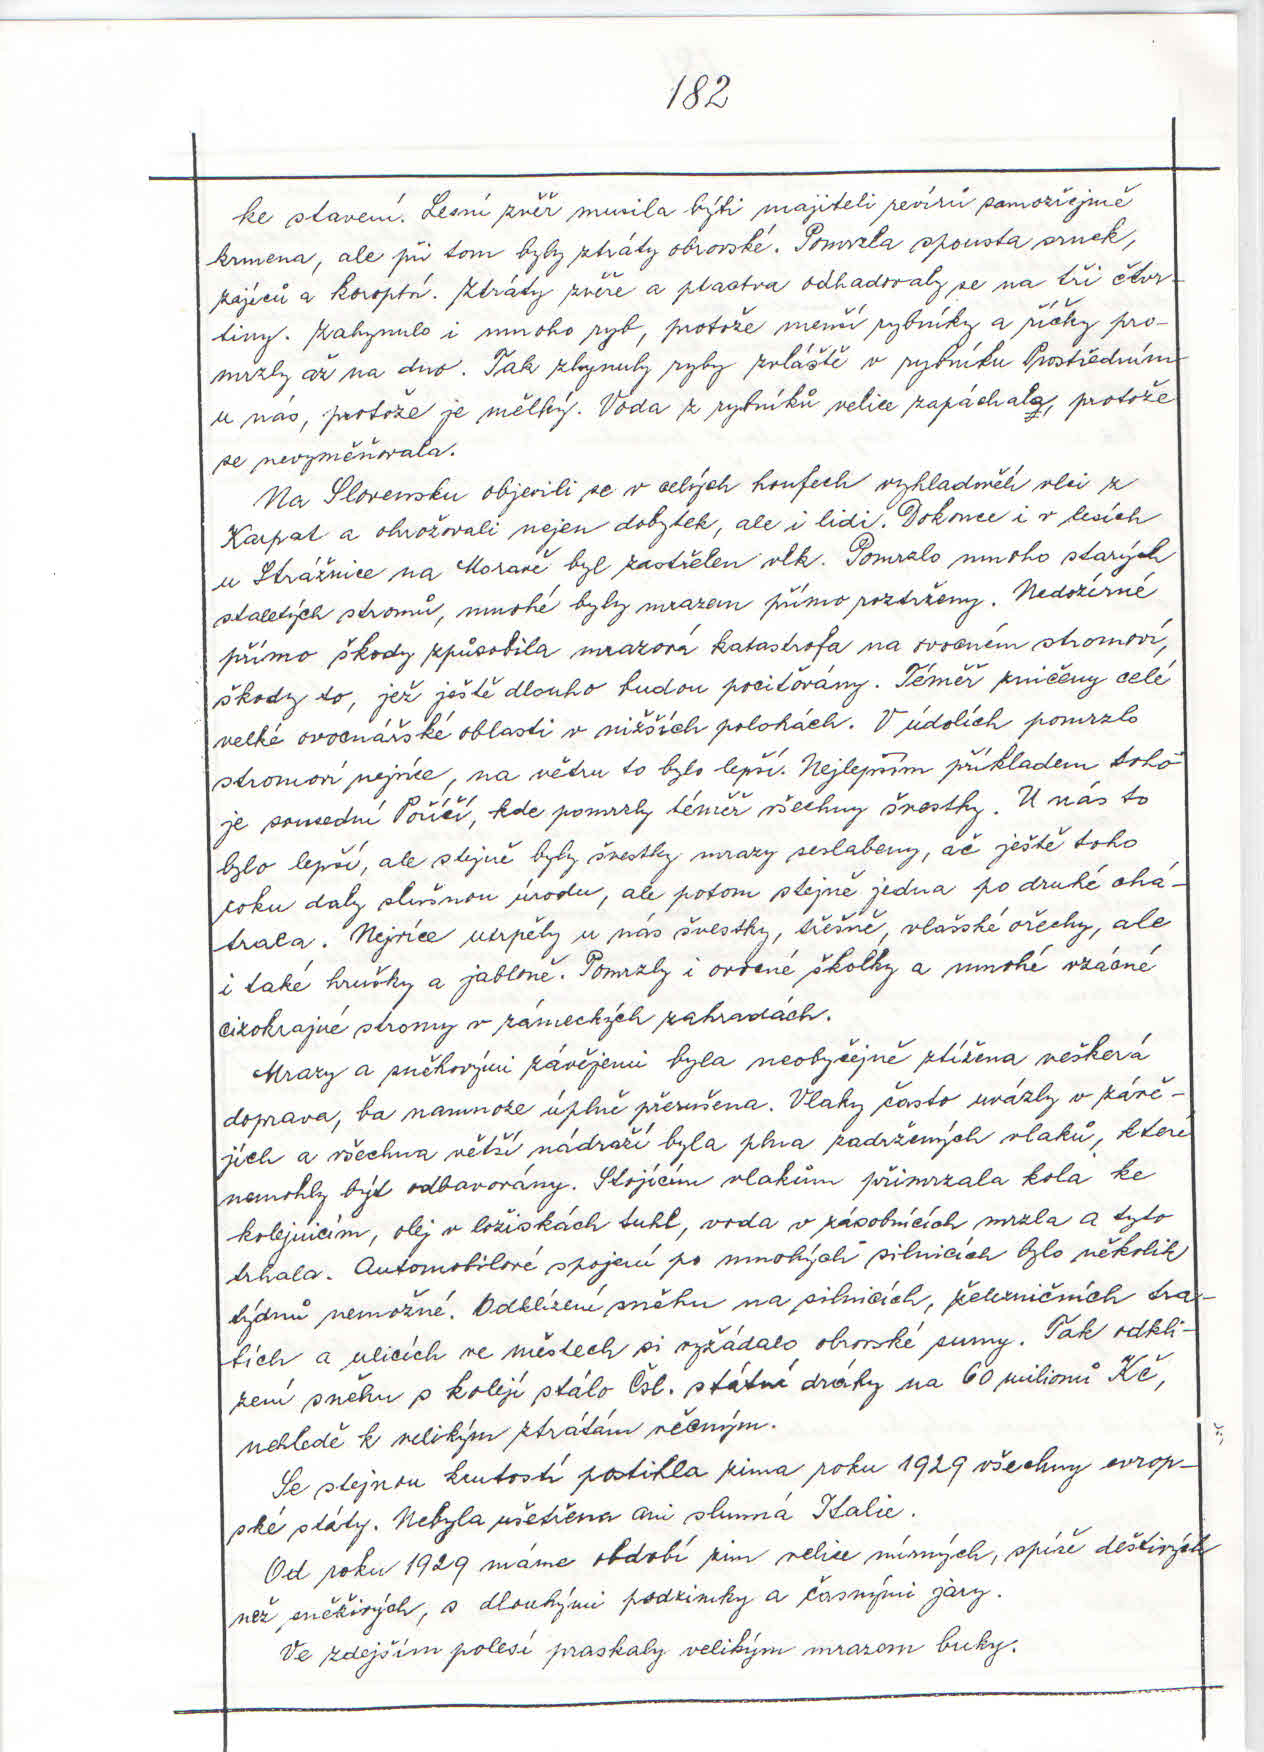 182
ke stavení. Lesní zvěř musila býti majiteli revírů samozřejmě
krmena, ale při tom byly ztráty obrovské. Pomrzla spousta srnek,
zajíců a koroptví. Ztráty zvěře a ptactva odhadovaly se na tři čtvr-
tiny. Zahynulo i mnoho ryb, protože menší rybníky a říčky pro-
mrzly až na dno. Tak zhynuly ryby zvláště v rybníku Prostředním
u nás, protože je mělký. Voda z rybníků velice zapáchala, protože
se nevyměňovala.
Na Slovensku objevili se v celých houfech vyhladovělí vlci z
Karpat a ohrožovali nejen dobytek, ale i lidi. Dokonce i v lesích
u Strážnice na Moravě byl zastřelen vlk. Pomrzlo mnoho starých
staletých stromů, mnohé byly mrazem přímo roztrženy. Nedozírné
přímo škody způsobila mrazová katastrofa na ovocném stromoví,
škody to, jež ještě dlouho budou pociťovány. Téměř zničeny celé
velké ovocnářské oblasti v nižších polohách. V údolích pomrzlo
stromoví nejvíce, na větru to bylo lepší. Nejlepším příkladem toho
je sousední Poříčí, kde pomrzly téměř všechny švestky. U nás to
bylo lepší, ale stejně byly švestky mrazy seslabeny, ač ještě toho
roku daly slušnou úrodu, ale potom stejně jedna po druhé chá-
trala. Nejvíce utrpěly u nás švestky, třešně, vlašské ořechy, ale
i také hrušky a jabloně. Pomrzly i ovocné školky a mnohé vzácné
cizokrajné stromy v zámeckých zahradách.
Mrazy a sněhovými závějemi byla neobyčejně ztížena veškerá
doprava, ba namnoze úplně přerušena. Vlaky často uvázly v závě-
jích a všechna větší nádraží byla plna zadržených vlaků, které
nemohly být odbavovány. Stojícím vlakům přimrzala kola ke
kolejnicím, olej v ložiskách tuhl, voda v zásobnicích mrzla a tyto
trhala. Automobilové spojení po mnohých silnicích bylo několik
týdnů nemožné. Odklízení sněhu na silnicích, železničních tra-
tích a ulicích ve městech si vyžádalo obrovské sumy. Tak odkli-
zení sněhu s kolejí stálo Čsl. státní dráhy na 60 milionů Kč,
nehledě k velikým ztrátám věcným.
Se stejnou krutostí postihla zima roku 1929 všechny evrop-
ské státy. Nebyla ušetřena ani slunná Italie.
Od roku 1929 máme období zim velice mírných, spíše deštivých
než sněživých, s dlouhými podzimky a časnými jary.
Ve zdejším polesí praskaly velikým mrazem buky.